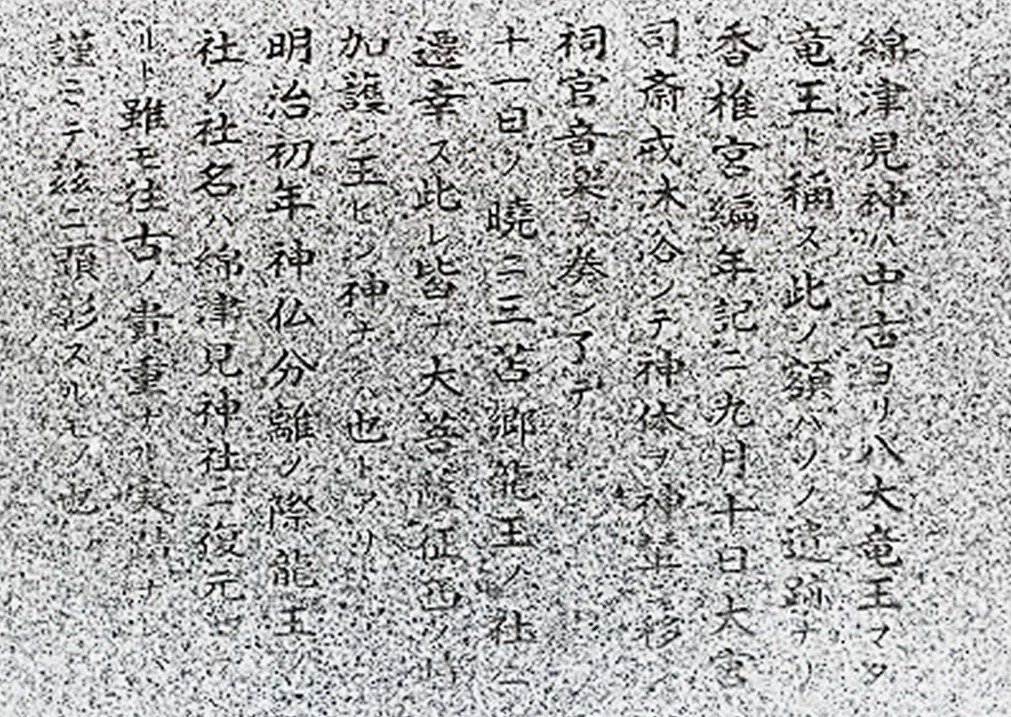 綿津見神ハ中古ヨリ八大竜王マタ
竜王ト稱ス此ノ額ハソノ遺跡ナリ
香椎宮編年記ニ九月十日大宮
司斎戒沐浴シテ神体ヲ神輦ニ移シ
祠官音楽ヲ奏シ了テ
十一日ノ曉ニ三苫郷龍王ノ社ニ
遷幸ス此レ皆ナ大菩薩征西ノ時
加護シ玉ヒシ神ナレハ也トアリ
明治初年神仏分離ノ際龍王
社ノ社名ハ綿津見神社ニ復元
ルト雖モ往古ノ貴重ナル史
謹ミテ茲ニ顕彰スルモノ也